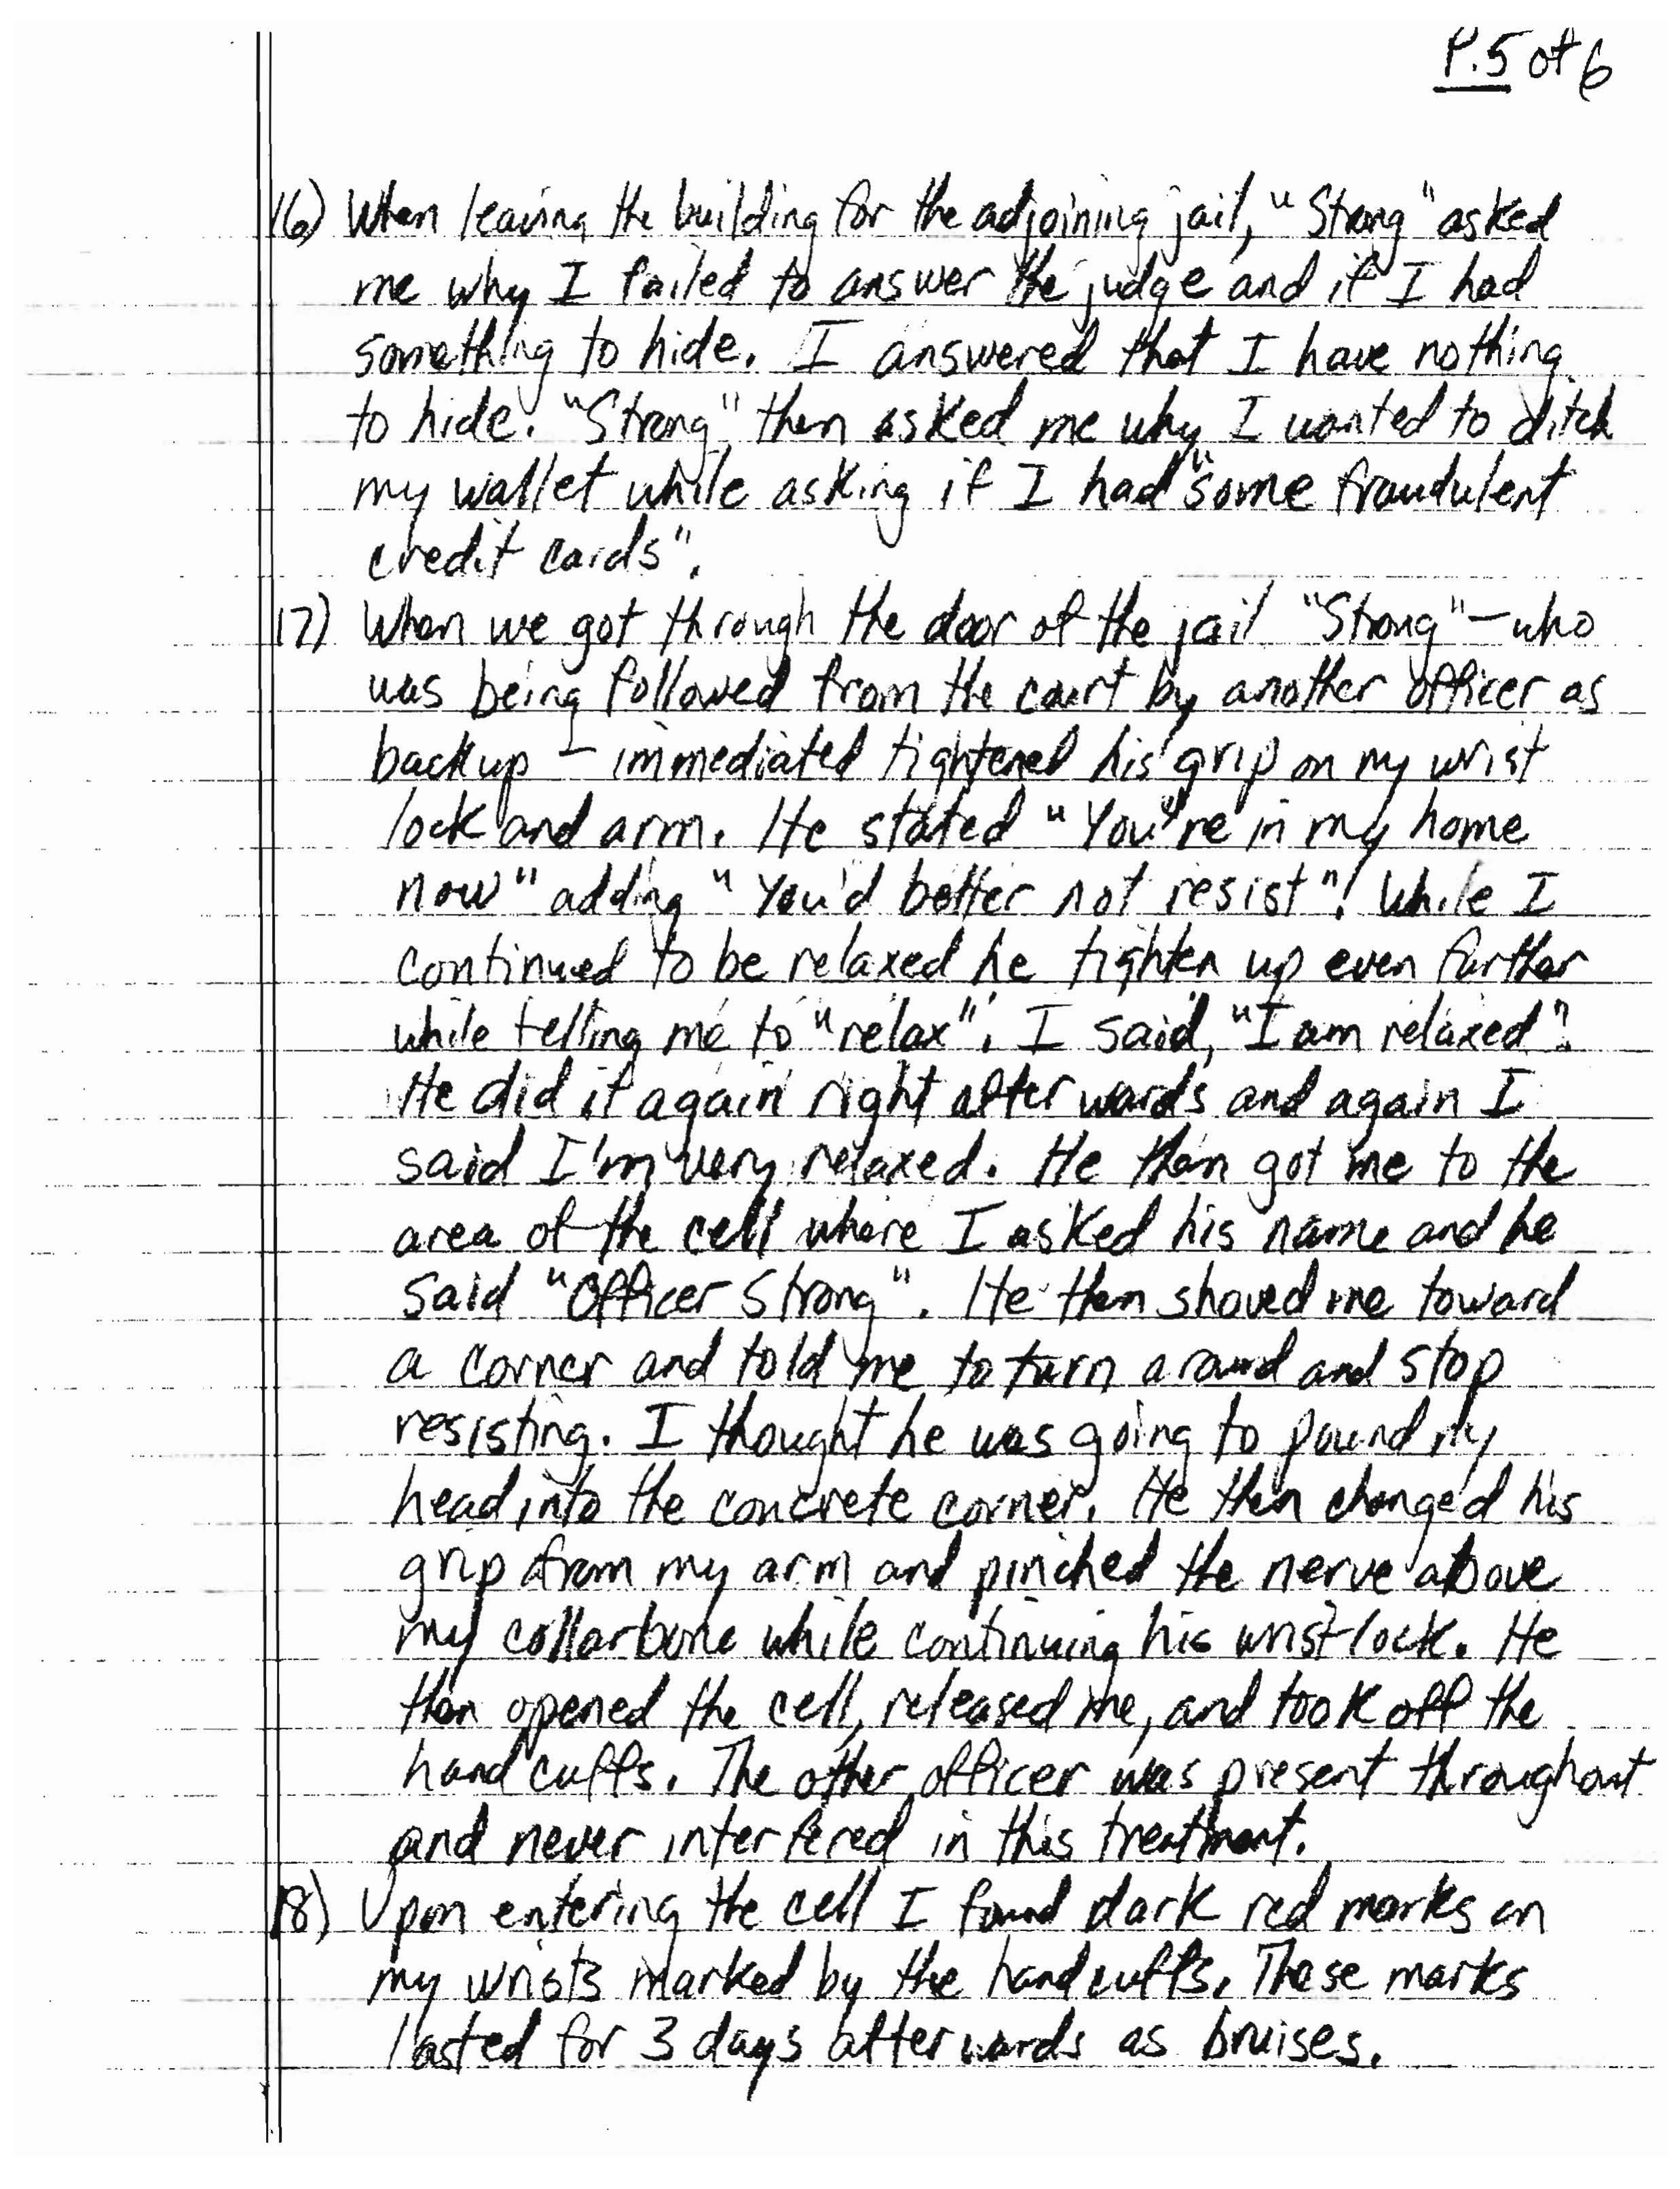 P.5 of 6
16) When leaving the building for the adjoining jail, "Strong" asked
me why I failed to answer the judge and if I had
something to hide. I answered that I have nothing
to hide. "Strong" then asked me why I wanted to ditch
my wallet while asking if I had "some fraudulent
credit cards".
17) When we got through the door of the jail "Strong" – who
was being followed from the court by another officer as
backup – immediated tightened his grip on my wrist
lock and arm. He stated "You're in my home
now" adding "You'd better not resist"! While I
continued to be relaxed he tighten up even further
while telling me to "relax". I said, "I am relaxed".
He did it again right afterwards and again I
said I'm very relaxed. He then got me to the
area of the cell where I asked his name and he
said "Officer Strong". He then shoved me toward
a corner and told me to turn around and stop
resisting. I thought he was going to pound my
head into the concrete corner. He then changed his
grip from my arm and pinched the nerve above
my collarbone while continuing his wrist-lock. He
then opened the cell, released me, and took off the
handcuffs. The other officer was present throughout
and never interfered in this treatment.
18) Upon entering the cell I found dark red marks on
my wrists marked by the handcuffs. These marks
lasted for 3 days afterwards as bruises.